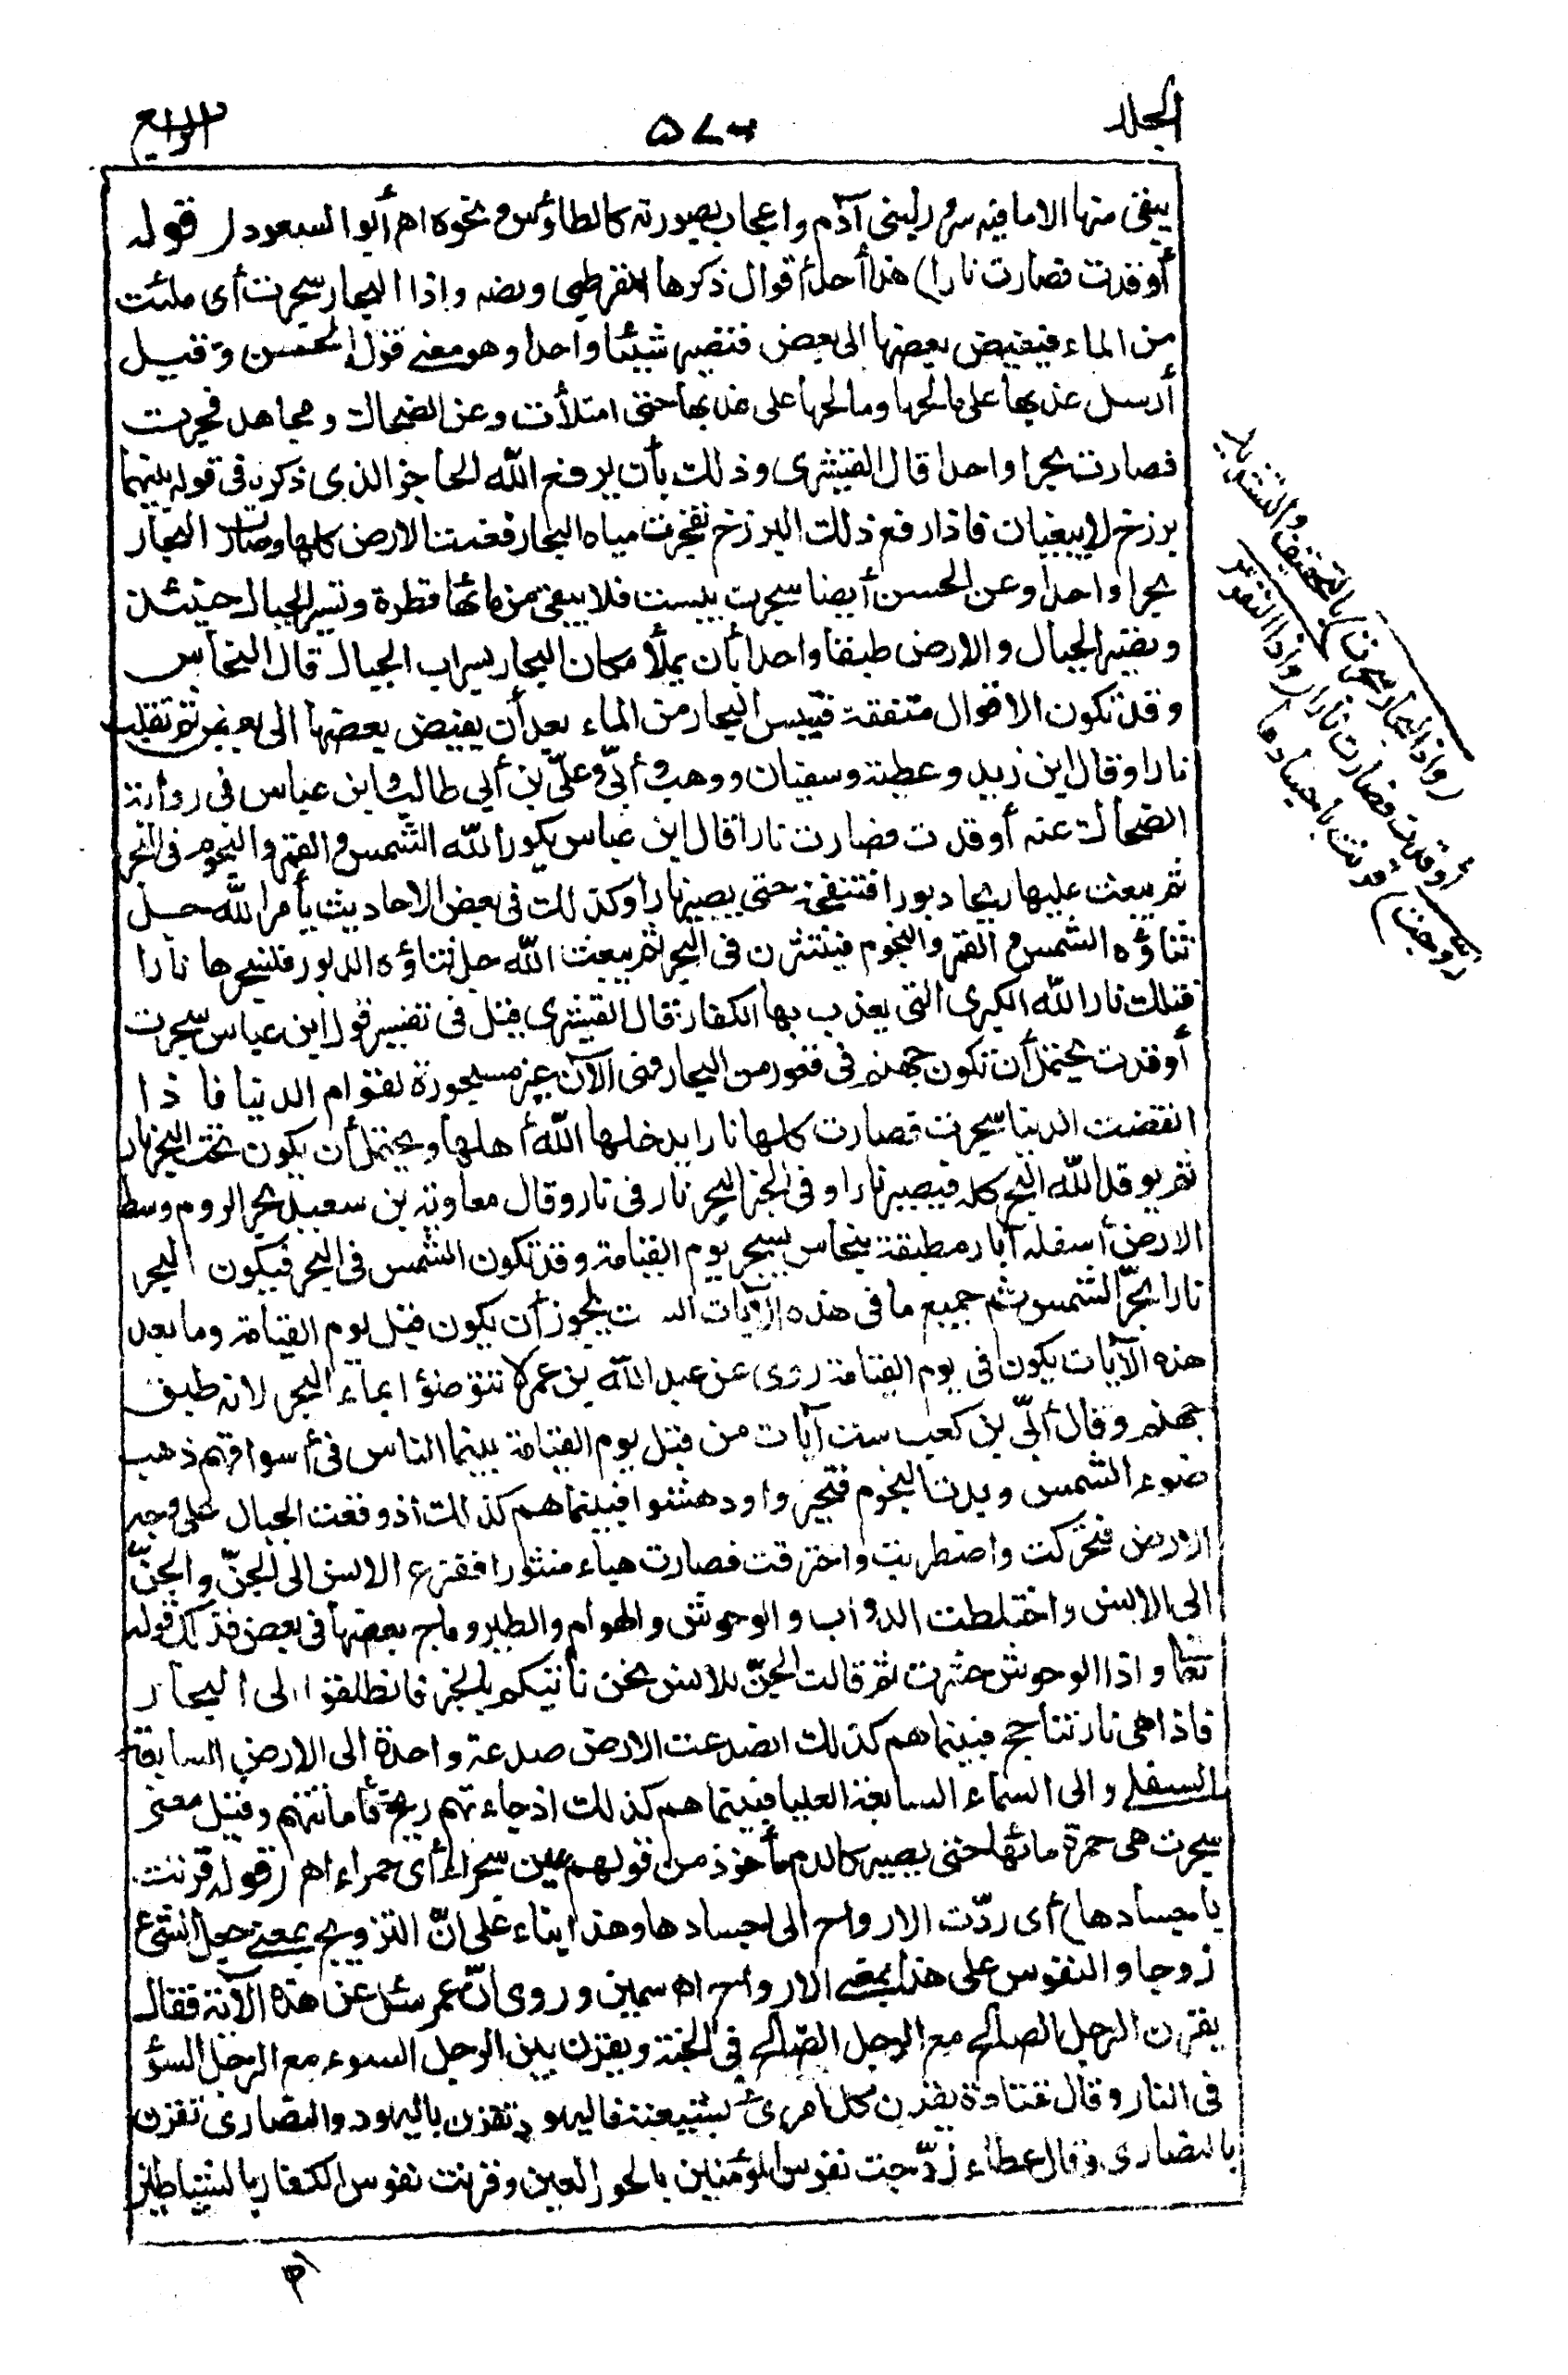 الجلد
٥٧٠
الرابع
يبقى منها الا ما فيه سرور لبنى آدم واعجاب بصورته كالطاؤس ونحوه اهـ أبو السعود (قوله
أوقدت فصارت نارا) هذا أحد أقوال ذكرها القرطبى ونصه واذا البحار سجرت أى ملئت
من الماء فيفيض بعضها الى بعض فتصير شيئا واحدا وهو معنى قول الحسن وقيل
أرسل عذبها على مالحها ومالحها على عذبها حتى امتلأت وعن الضحاك ومجاهد فجرت
فصارت بحرا واحدا قال القشيرى وذلك بأن يرفع الله الحاجز الذى ذكره فى قوله بينهما
برزخ لا يبغيان فاذا رفع ذلك البرزخ تفجرت مياه البحار فعمت الارض كلها وصارت البحار
بحرا واحدا وعن الحسن أيضا سجرت يبست فلا يبقى من مائها قطرة وتسير الجبال حينئذ
وتصير الجبال والارض طبقا واحدا بأن يملأ مكان البحار بتراب الجبال قال النحاس
وقد تكون الاقوال متفقة فتيبس البحار من الماء بعد أن يفيض بعضها الى بعض ثم تقلب
نارا وقال ابن زيد وعطية وسفيان ووهب وأبىّ وعلىّ بن أبى طالب وابن عباس فى رواية
الضحاك عنه أوقدت فصارت نارا قال ابن عباس يكور الله الشمس والقمر والنجوم فى البحر
ثم يبعث عليها ريحا دبورا فتنفخه حتى يصير نارا وكذلك فى بعض الاحاديث يأمر الله جل
ثناؤه الشمس والقمر والنجوم فينتثرن فى البحر ثم يبعث الله جل ثناؤه الدبور فيسجرها نارا
فتلك نار الله الكبرى التى يعذب بها الكفار قال القشيرى قيل فى تفسير قول ابن عباس سجرت
أوقدت يحتمل أن تكون جهنم فى قعور من البحار فهى الآن غير مسجورة لقوام الدنيا فاذا
انقضت الدنيا سجرت فصارت كلها نارا يدخلها الله أهلها ويحتمل أن يكون تحت البحر نار
ثم يوقد الله البحر كله فيصير نارا وفى الخبر البحر نار فى نار وقال معاوية بن سعيد بحر الروم وسط
الارض أسفله آبار مطبقة بنحاس يسجر يوم القيامة وقد تكون الشمس فى البحر فيكون البحر
نارا بحرّ الشمس ثم جميع ما فى هذه الآيات ... يجوز أن يكون قبل يوم القيامة وما بعد
هذه الآيات يكون فى يوم القيامة روى عن عبد الله بن عمر لا تتوضؤا بماء البحر لانه طبق
جهنم وقال أبىّ بن كعب ست آيات من قبل يوم القيامة بينما الناس فى أسواقهم ذهب
ضوء الشمس وبدت النجوم فتحيروا ودهشوا فبينما هم كذلك اذ وقعت الجبال على وجه
الارض فتحركت واضطربت واحترقت فصارت هباء منثورا ففزع الانس الى الجنّ والجنّ
الى الانس واختلطت الدواب والوحوش والهوام والطير وماج بعضها فى بعض فذلك قوله
تعالى واذا الوحوش حشرت ثم قالت الجنّ للانس نحن نأتيكم بالخبر فانطلقوا الى البحار
فاذا هى نار تتأجج فبينما هم كذلك انصدعت الارض صدعة واحدة الى الارض السابعة
السفلى والى السماء السابعة العليا فبينما هم كذلك اذ جاءتهم ريح فأماتتهم وقيل معنى
سجرت هى حمرة مائها حتى يصير كالدم مأخوذ من قولهم عين سجراء أى حمراء اهـ (قوله قرنت
بأجسادها) أى ردّت الارواح الى اجسادها وهذا بناء على انّ التزويج بمعنى جعل الشئ
زوجا والنفوس على هذا بمعنى الارواح اهـ سمين وروى انّ عمر سئل عن هذه الآية فقال
يقرن الرجل الصالح مع الرجل الصالح فى الجنة ويقرن بين الرجل السوء مع الرجل السوء
فى النار وقال قتادة يقرن كل امرئ بشيعته فاليهود تقرن باليهود والنصارى تقرن
بالنصارى وقال عطاء زوّجت نفوس المؤمنين بالحور العين وقرنت نفوس الكفار بالشياطين
(واذا البحار سجرت) بالتخفيف والتشديد
أوقدت فصارت نارا (واذا النفوس
زوجت) قرنت بأجسادها